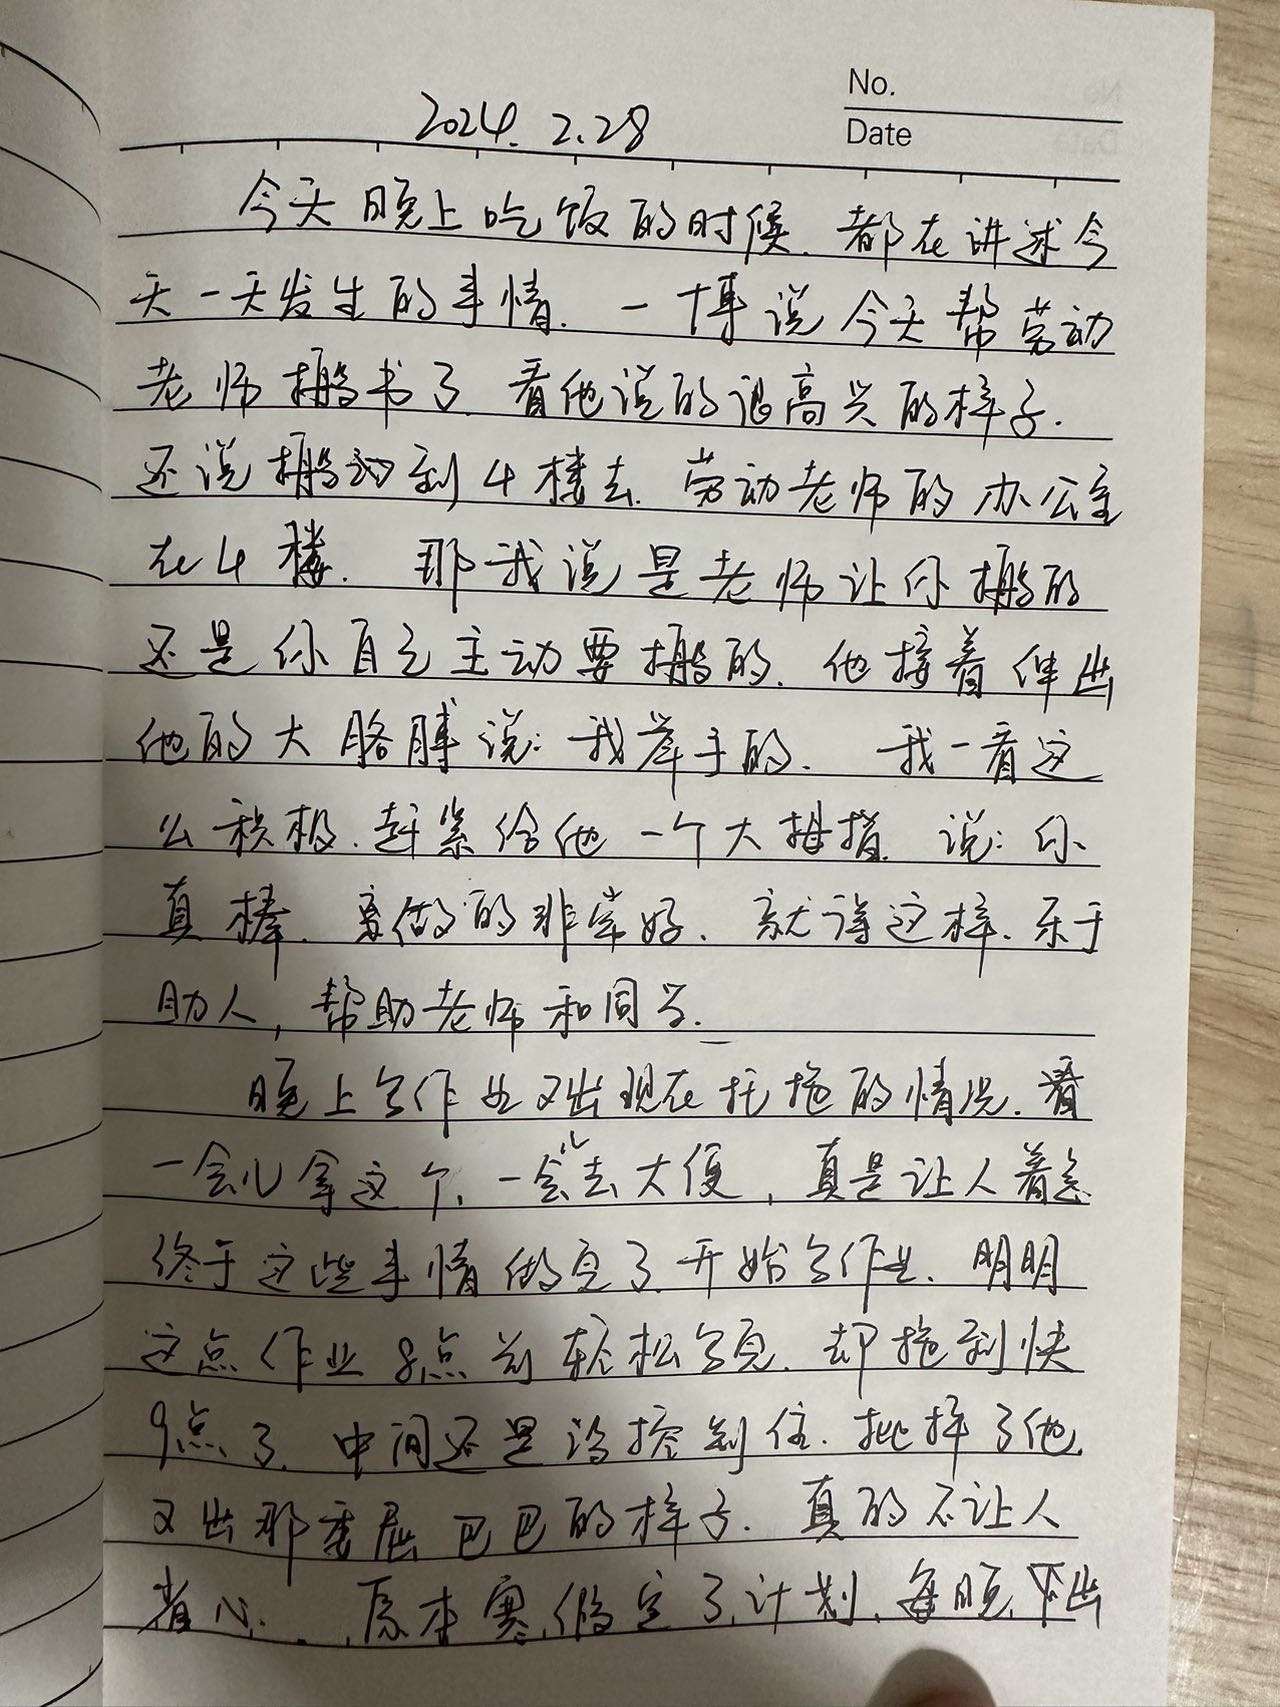 No.
Date
2024. 2.28
今天晚上吃饭的时候.都在讲述今
天一天发生的事情.一博说今天帮劳动
老师搬书了.看他说的很高兴的样子.
还说搬到4楼去.劳动老师的办公室
在4楼. 那我说是老师让你搬的
还是你自己主动要搬的.他接着伸出
他的大胳膊说:我举手的. 我一看这
么积极.赶紧给他一个大拇指.说:你
真棒.做的非常好.就得这样.乐于
助人,帮助老师和同学.
晚上写作业又出现在托拖的情况.看
一会儿拿这个、一会儿去大便,真是让人着急
终于这些事情做完了.开始写作业.明明
这点作业8点前轻松写完.却拖到快
9点了.中间还是没控制住.批评了他.
又出那委屈巴巴的样子.真的不让人
省心. 原本寒假定了计划.每晚下出